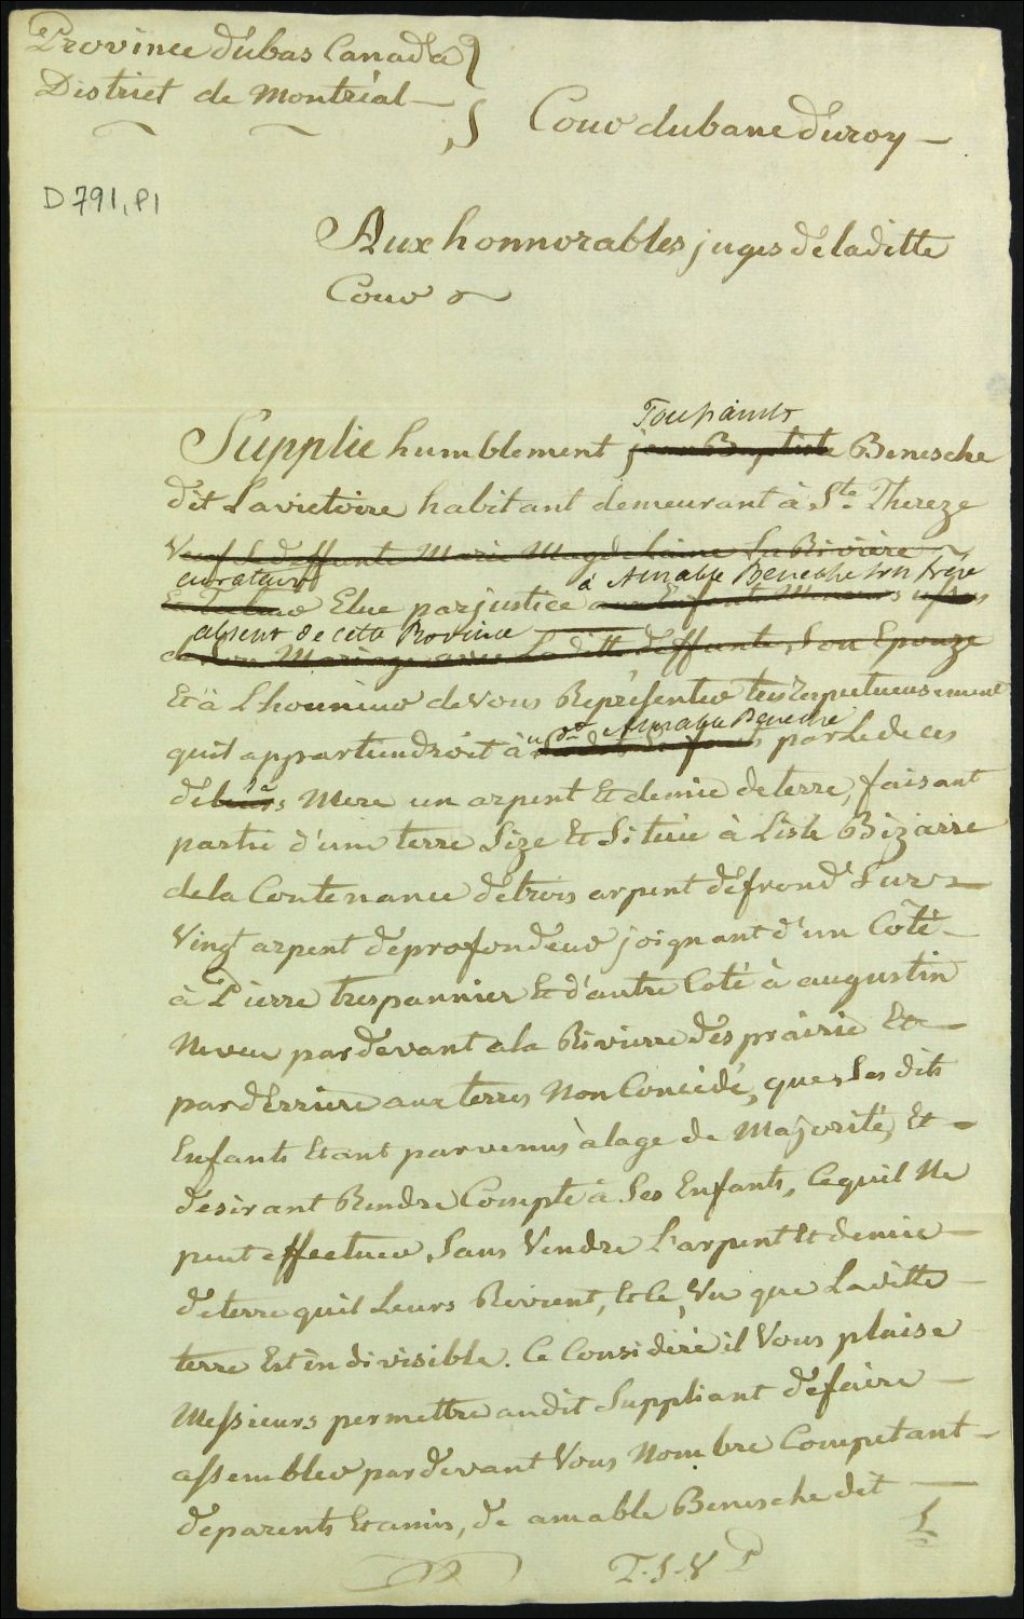 Province du bas Canada
District de Montréal —
Cour du banc du roy —
D791, P1
Aux honnorables juges de laditte
Cour
Toussaint
Supplie humblement jean Baptiste Benesche
dit Lavictoire habitant demeurant à Ste. Thereze
Veuf de deffunte Marie Magdelaine La Riviere
curateur à Amable Beneche son frère
Et Tuteur Elue par justice aux Enfants Mineurs issus
absent de cette Province
de son Mariage avec Laditte deffunte, Son Epouze
Et à L'honnieur de Vous Représenter très respectueusement
dt Amable Beneche
quil appartiendroit à par Le deces
de leurs Mere un arpent Et demie de terre, faisant
partie d'une terre Size Et Située à L'isle Bizarre
de la Contenance de trois arpent de frond Sur
Vingt arpent de profondeur joignant d'un Côté
à Pierre trespannier Et d'autre Coté à augustin
Neveu par devant a la Rivierre des prairie Et
par dErriere aux terres Non Concédé, que Les dits
Enfants Etant parvenus à lage de Majorité, Et
désirant Rendre Compte à Ses Enfants, Ce quil Ne
peut effectuer, Sans Vendre L'arpent Et demie
de terre quil Leurs Revient, Et Ce, Vu que Laditte
terre Est indivisible. Ce Considéré il Vous plaise
Messieurs permettre audit Suppliant de faire
assembler par devant Vous Nombre Competant
de parents Et amis, de amable Benesche dit
T.S.V.P
L